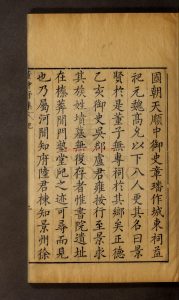 國朝天順中御史章璠作城東祠益
祀元魏高允以下八人更其名曰景
賢於是董子無專祠於其鄉矣正德
乙亥御史吳郡盧君雍按行至景求
其族姓墳墓無復存者惟書院遺址
在榛莽間門墊堂阤之迹可尋而見
也乃屬河間知府陸君棟知景州徐